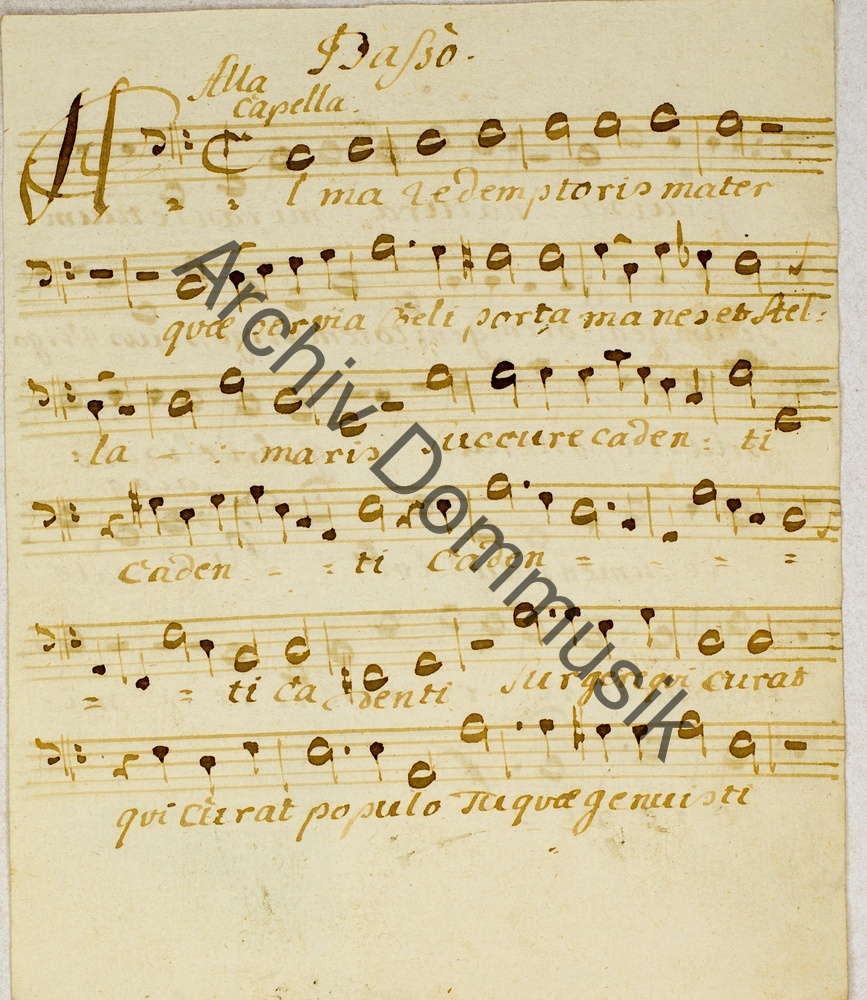 Basso.
Alla
Capella.
A = = lma Redemptoris mater
quæ pervia Cœli porta manes et stel:
:la - : maris succure caden: ti
caden - : ti Caden = = = =
= = ti Cadenti surgeri qui curat
qui Curat populo Tu quæ genuisti
Archiv Dommusik